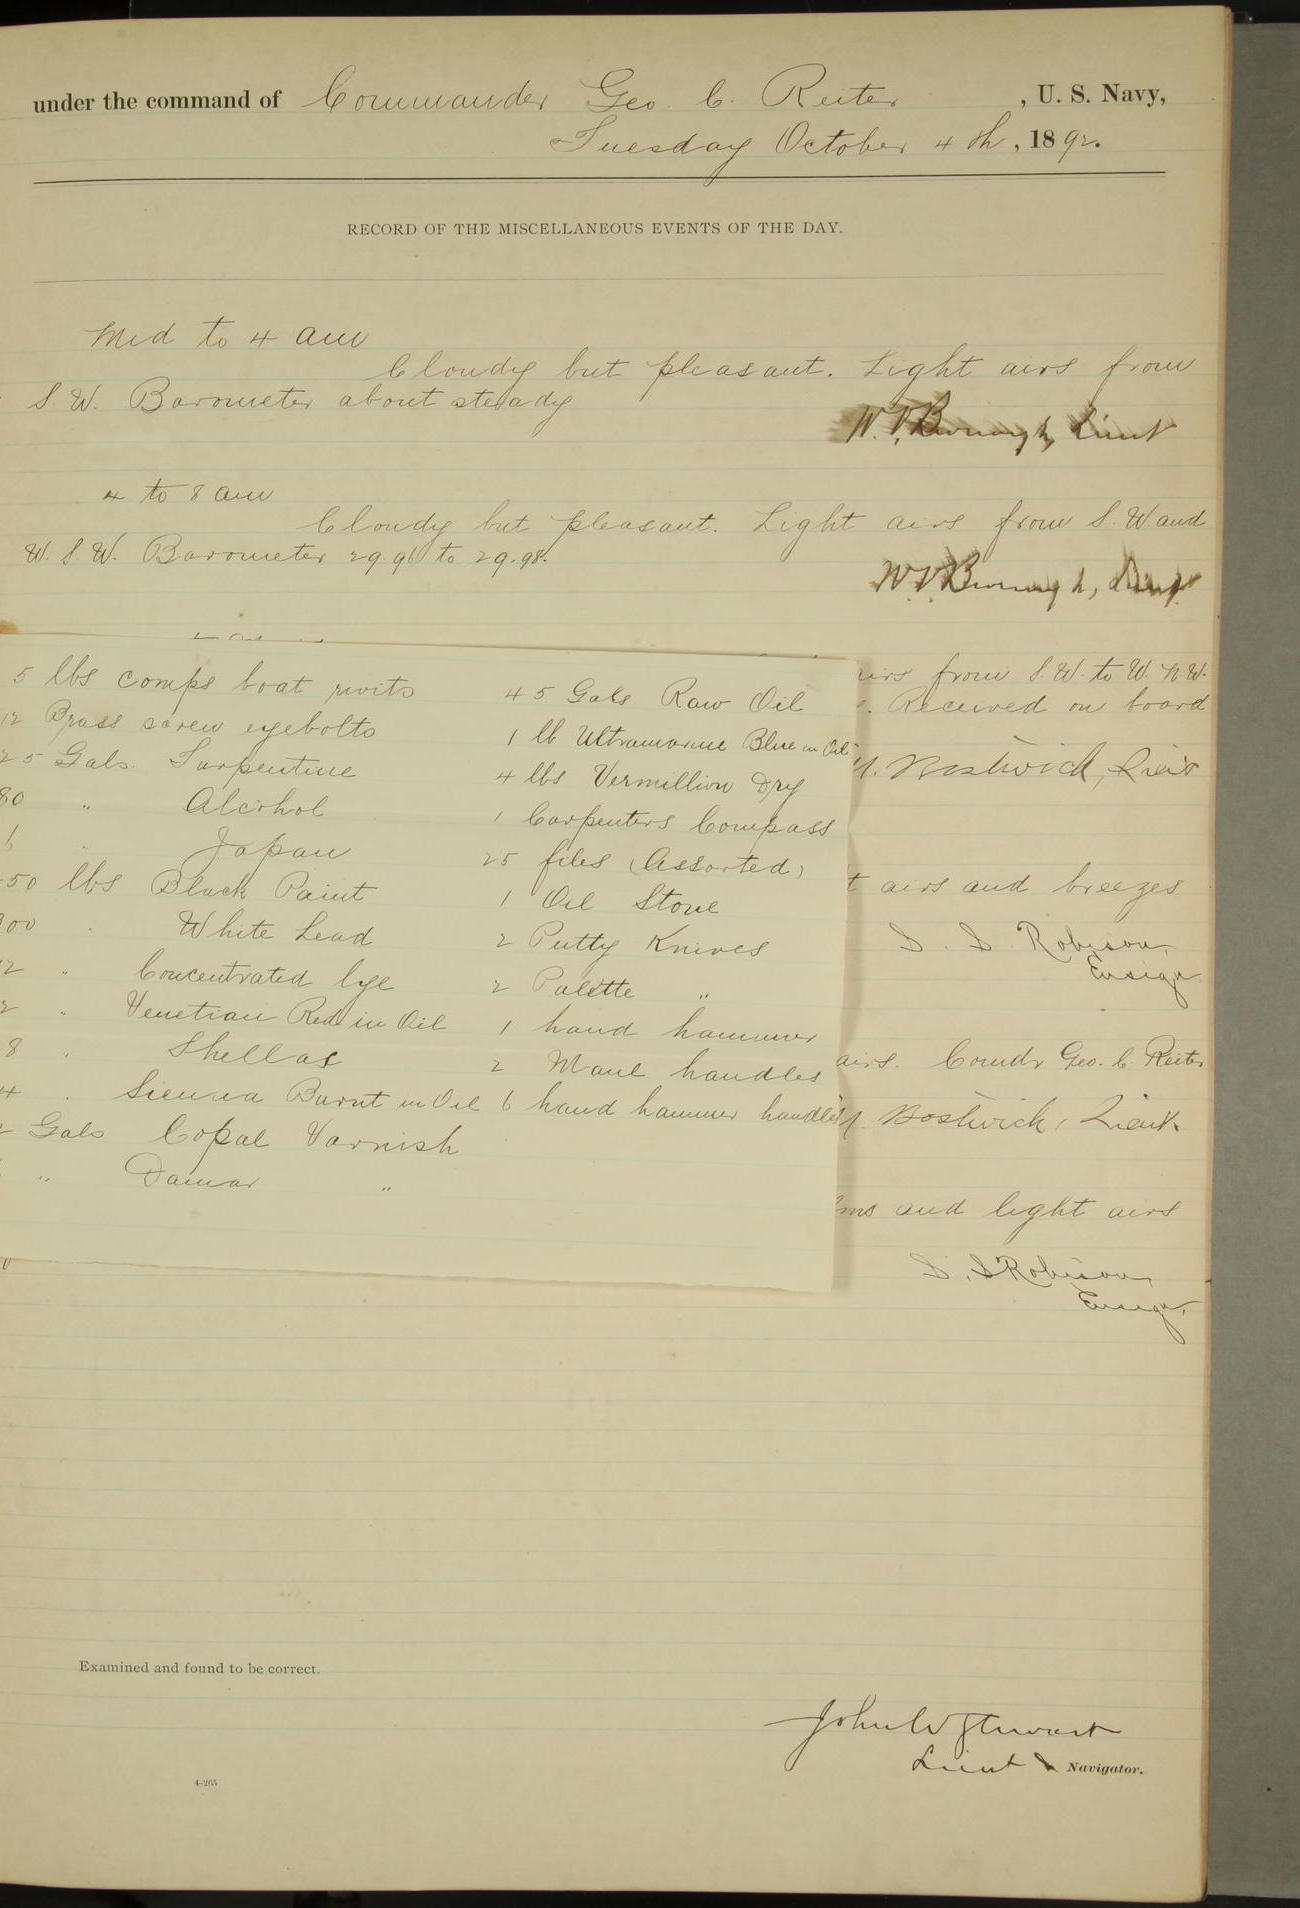 under the command of Commander Geo. C. Reiter, U. S. Navy,
Tuesday October 4th, 1892.
RECORD OF THE MISCELLANEOUS EVENTS OF THE DAY.
Mid to 4 am
Cloudy but pleasant. Light airs from
S. W. Barometer about steady
Lieut
4 to 8 am
Cloudy but pleasant. Light airs from S. W. and
W. S. W. Barometer 29.96 to 29.98.
airs from S. W. to W. N. W.
Received on board
Bostwick, Lieut
airs and breezes
S. S. Robison,
Ensign
airs. Comdr Geo. C. Reiter
Bostwick, Lieut.
and light airs
S. S. Robison,
Ensign.
5 lbs comps boat rivits
12 Brass screw eyebolts
25 Gals. Turpentine
80 " Alcohol
6 " Japan
50 lbs Black Paint
00 " White Lead
2 " Concentrated lye
2 " Venetian Red in Oil
8 " Shellac
4 " Sienna Burnt in Oil
Gals Copal Varnish
" Damar "
45 Gals Raw Oil
1 lb Ultramarine Blue in Oil
4 lbs Vermillion Dry
1 Carpenters Compass
25 files (Assorted)
1 Oil Stone
2 Putty Knives
2 Palette "
1 hand hammer
2 Maul handles
6 hand hammer handles
Examined and found to be correct.
John W Stewart
Lieut Navigator.
4-265